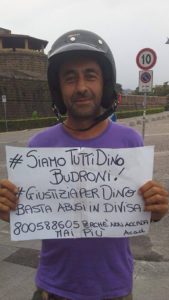 10
#SIAMO TUTTI DINO
BUDRONI!
#GIUSTIZIA PER DINO
BASTA ABUSI IN DIVISA...
800588605 PERCHÈ NON ACCADA
MAI PIÙ Acad